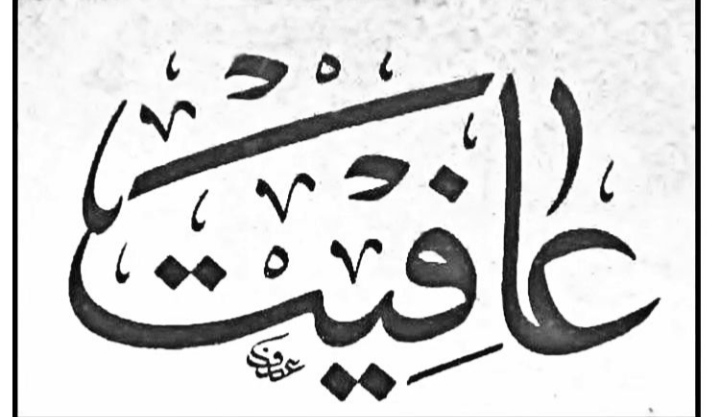 عافيت